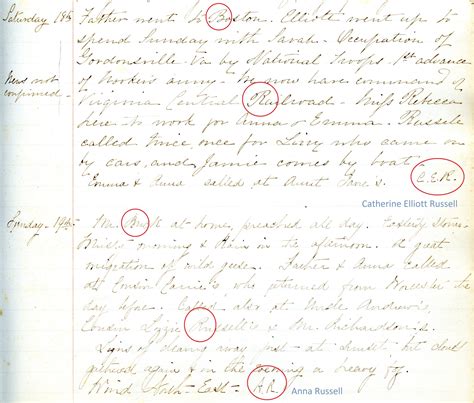 Saturday 18th Father went to Boston. Elliott went up to
spend Sunday with Sarah. Occupation of
Gordonsville Va by National Troops. 1st advance
News not of Hooker's army. We now have command of
confirmed. Virginia Central Railroad. Miss Rebecca
here to work for Anna & Emma. Russell
called twice, once for Lizzy who came on
by cars, and Jamie comes by boat.
Emma & Anna called at Aunt Jane's. C.E.R.
Catherine Elliott Russell
Sunday 19th Mr. at home, preached all day.
morning & in the afternoon. A great
migration of wild geese. Father & Anna called
at Cousin Carrie's, who returned from Worcester the
day before. Called also at Uncle Andrew's,
Cousin Lizzie Russell's & M. Richardson's.
Signs of clearing away just at sunset, but clouds
gathered again & in the evening a heavy fog.
Wind North-East. A.R.
Anna Russell